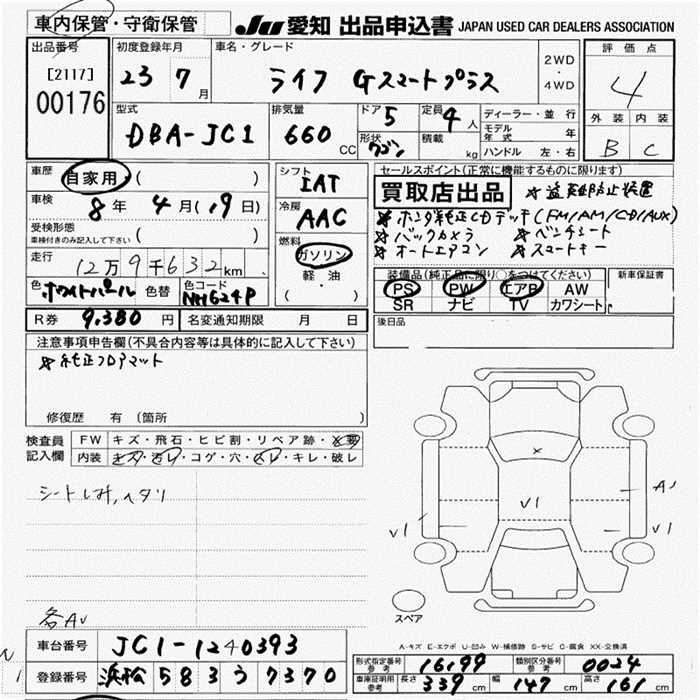 車内保管・守衛保管
JU 愛知 出品申込書 JAPAN USED CAR DEALERS ASSOCIATION
出品番号 初度登録年月 車名・グレード 評価点
[2117]
00176
23 7月
ライフ Gスマートプラス
2WD
・
4WD
4
型式 排気量 ドア 5 定員 4人 ディーラー・並行
DBA-JC1 660CC
形状 ワゴン 積載 kg モデル年式 年
ハンドル 左・右
外装 内装
B C
車歴 自家用 ( )
車検 8年 4月(19日)
受検形態
車検付きのみ記入して下さい ( )
走行 12万9千632km
色 ホワイトパール 色替 色コード NH624P
シフト IAT
冷房 AAC
燃料 ガソリン
・
軽・油
( )
セールスポイント(正常に機能するものに限ります)
買取店出品 ☆盗難防止装置
☆ホンダ純正CDデッキ(FM/AM/CD/AUX)
☆バックカメラ ☆ベンチシート
☆オートエアコン ☆スマートキー
装備品(純正品に限り○をつけてください) 新車保証書
PS PW エアB AW
SR ナビ TV カワシート
R券 9,380円 名変通知期限 月 日
後日品
注意事項申告欄(不具合内容等は具体的に記入して下さい)
☆純正フロアマット
修復歴 有 (箇所 )
検査員記入欄
FW キズ・飛石・ヒビ割・リペア跡・×要
内装 キズ・汚レ・コゲ・穴・ビレ・キレ・破レ
シートしみ,ヘタリ
各AU
×
V1
V1
A1
V1
スペア
A-キズ E-エクボ U-凹み W-補修跡 S-サビ C-腐食 XX-交換済
車台番号 JC1-1240393
登録番号 浜松 583 う 7370
形式指定番号 参考 16199 類別区分番号 参考 0024
車庫証明用 参考 長さ 339cm 幅 147cm 高さ 161cm